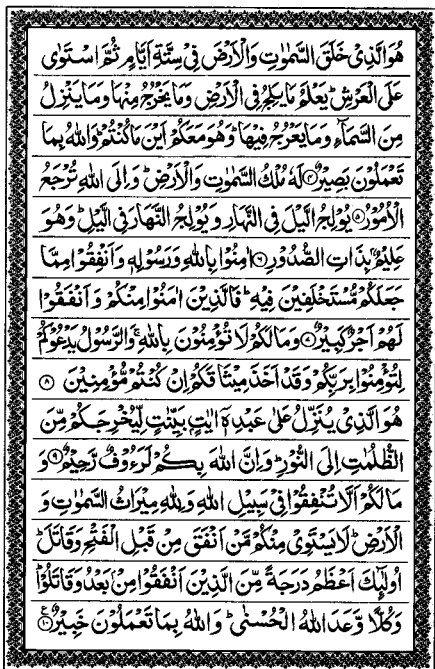 هُوَ الَّذِىْ خَلَقَ السَّمٰوٰتِ وَالْاَرْضَ فِىْ سِتَّةِ اَيَّامٍ ثُمَّ اسْتَوٰى
عَلَى الْعَرْشِ ؕ يَعْلَمُ مَا يَلِجُ فِى الْاَرْضِ وَمَا يَخْرُجُ مِنْهَا وَمَا يَنْزِلُ
مِنَ السَّمَآءِ وَمَا يَعْرُجُ فِيْهَا ؕ وَهُوَ مَعَكُمْ اَيْنَ مَا كُنْتُمْ ؕ وَاللّٰهُ بِمَا
تَعْمَلُوْنَ بَصِيْرٌ ۴ لَهٗ مُلْكُ السَّمٰوٰتِ وَالْاَرْضِ ؕ وَاِلَى اللّٰهِ تُرْجَعُ
الْاُمُوْرُ ۵ يُوْلِجُ الَّيْلَ فِى النَّهَارِ وَيُوْلِجُ النَّهَارَ فِى الَّيْلِ ؕ وَهُوَ
عَلِيْمٌۢ بِذَاتِ الصُّدُوْرِ ۶ اٰمِنُوْا بِاللّٰهِ وَرَسُوْلِهٖ وَاَنْفِقُوْا مِمَّا
جَعَلَكُمْ مُّسْتَخْلَفِيْنَ فِيْهِ ؕ فَالَّذِيْنَ اٰمَنُوْا مِنْكُمْ وَاَنْفَقُوْا
لَهُمْ اَجْرٌ كَبِيْرٌ ۷ وَمَا لَكُمْ لَا تُؤْمِنُوْنَ بِاللّٰهِ ۚ وَالرَّسُوْلُ يَدْعُوْكُمْ
لِتُؤْمِنُوْا بِرَبِّكُمْ وَقَدْ اَخَذَ مِيْثَاقَكُمْ اِنْ كُنْتُمْ مُّؤْمِنِيْنَ ۸
هُوَ الَّذِىْ يُنَزِّلُ عَلٰى عَبْدِهٖۤ اٰيٰتٍۢ بَيِّنٰتٍ لِّيُخْرِجَكُمْ مِّنَ
الظُّلُمٰتِ اِلَى النُّوْرِ ؕ وَاِنَّ اللّٰهَ بِكُمْ لَرَءُوْفٌ رَّحِيْمٌ ۹ وَ
مَا لَكُمْ اَلَّا تُنْفِقُوْا فِىْ سَبِيْلِ اللّٰهِ وَلِلّٰهِ مِيْرَاثُ السَّمٰوٰتِ وَ
الْاَرْضِ ؕ لَا يَسْتَوِىْ مِنْكُمْ مَّنْ اَنْفَقَ مِنْ قَبْلِ الْفَتْحِ وَقَاتَلَ ؕ
اُولٰٓئِكَ اَعْظَمُ دَرَجَةً مِّنَ الَّذِيْنَ اَنْفَقُوْا مِنْۢ بَعْدُ وَقَاتَلُوْا ؕ
وَكُلًّا وَّعَدَ اللّٰهُ الْحُسْنٰى ؕ وَاللّٰهُ بِمَا تَعْمَلُوْنَ خَبِيْرٌ ۱۰